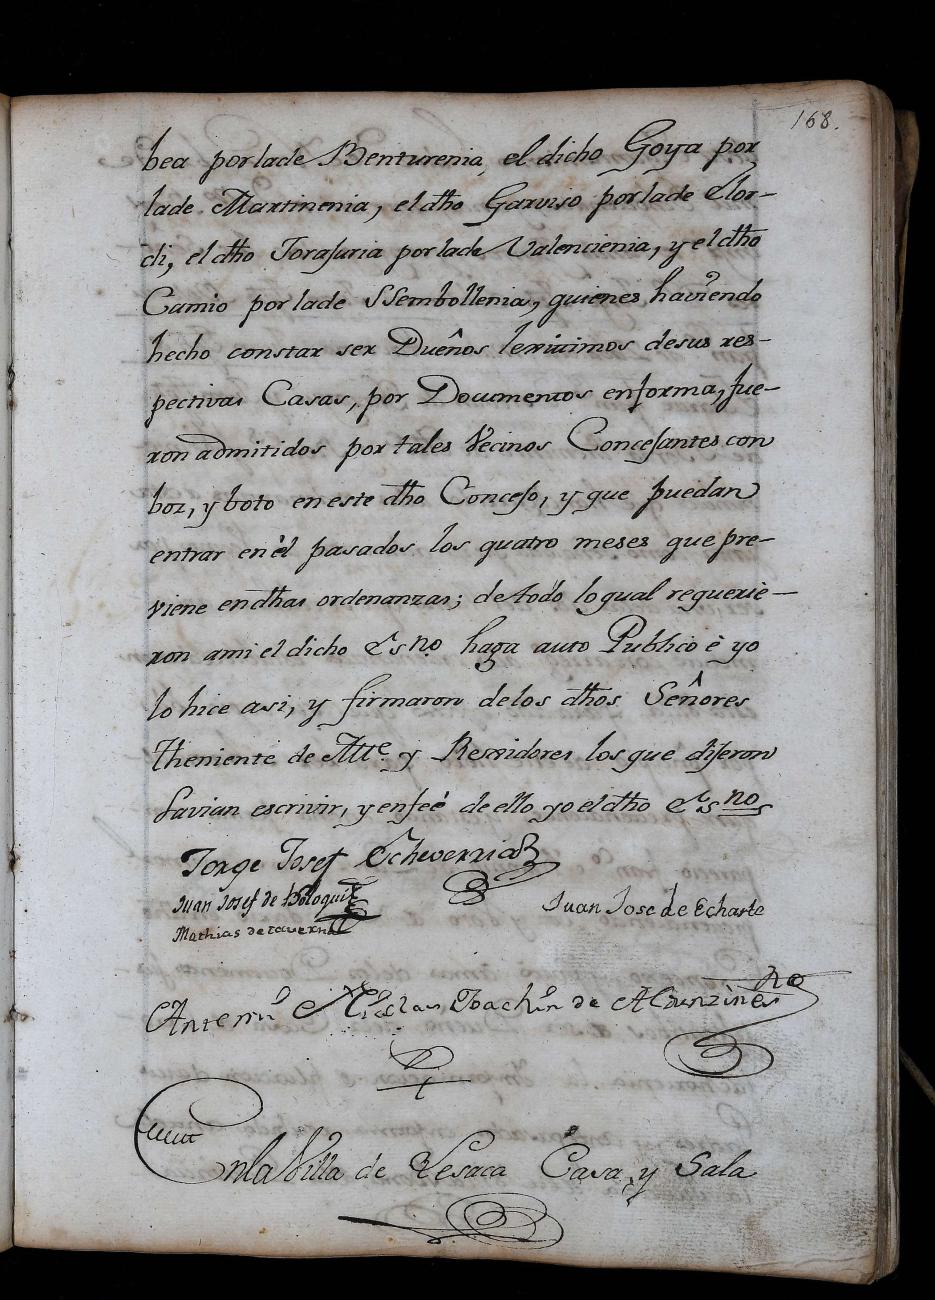 168.
bea por lade Benturenia, el dicho Goya por
lade Martinenia, el dho Garviso por lade Elor-
di, el dho Jorajuria por lade Valencienia, y el dho
Camio por lade SSembollenia, quienes haviendo
hecho constar ser Dueños lexitimos desus res-
pectivas Casas, por Documentos enforma, fue-
ron admitidos por tales Vecinos Concejantes con
boz, y boto en este dho Concejo, y que puedan
entrar en èl pasados los quatro meses que pre-
viene en dhas ordenanzas; de todo lo qual requerie-
ron ami el dicho Esno. haga auto Publico è yo
lo hice asi, y firmaron de los dhos Señores
Theniente de Alte. y Rexidores los que dijeron
savian escrivir, y en feé de ello yo el dho Esno
Jorge Josef Echeverria
Juan Josef de
Juan Jose de Echarte
Mathias de taverna
Antemi Joachin de
En la Villa de Lesaca Casa, y Sala